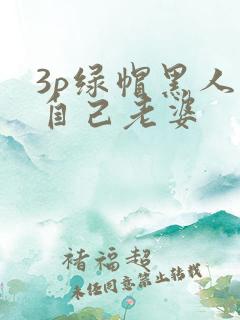 3p绿帽黑人
自己老婆
褚福超
未经同意禁止转载